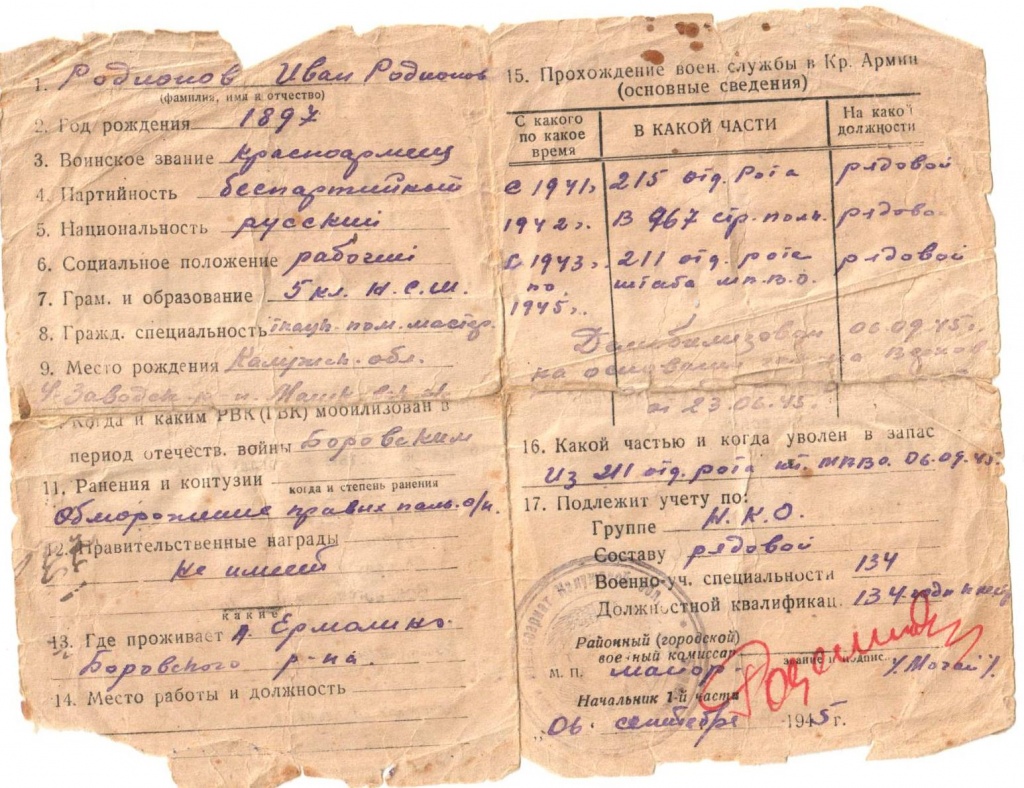 1. Родионов Иван Родионов
(фамилия, имя и отчество)
2. Год рождения 1897
3. Воинское звание красноармеец
4. Партийность беспартийный
5. Национальность русский
6. Социальное положение рабочий
7. Грам. и образование 5 кл. Н.С.Ш.
8. Гражд. специальность пом. мастер.
9. Место рождения Калужск. обл.
Заводск. р-н
Когда и каким РВК (ГВК) мобилизован в
период отечеств. войны Боровским
11. Ранения и контузии
когда и степень ранения
Обморожение правих паль.
12. Правительственные награды
не имеет
какие
13. Где проживает Ермолино
Боровского р-на.
14. Место работы и должность
15. Прохождение воен. службы в Кр. Армии
(основные сведения)
С какого по какое время В КАКОЙ ЧАСТИ На какой должности
с 1941г. 215 отд. рота рядовой
1942г. в 967 стр. полк. рядово
с 1943г. 211 отд. рота рядовой
по штаба
1945г.
Демобилизован 06.09.45г.
на основании
от 23.06.45.
16. Какой частью и когда уволен в запас
Из 211 отд. рота шт. МПВО. 06.09.45.
17. Подлежит учету по:
Группе Н.К.О.
Составу рядовой
Военно-уч. специальности 134
Должностной квалификац. 134
Районный (городской)
военный комиссар
звание и подпись
М. П. майор
Начальник 1-й части
„06. сентебре 1945 г.